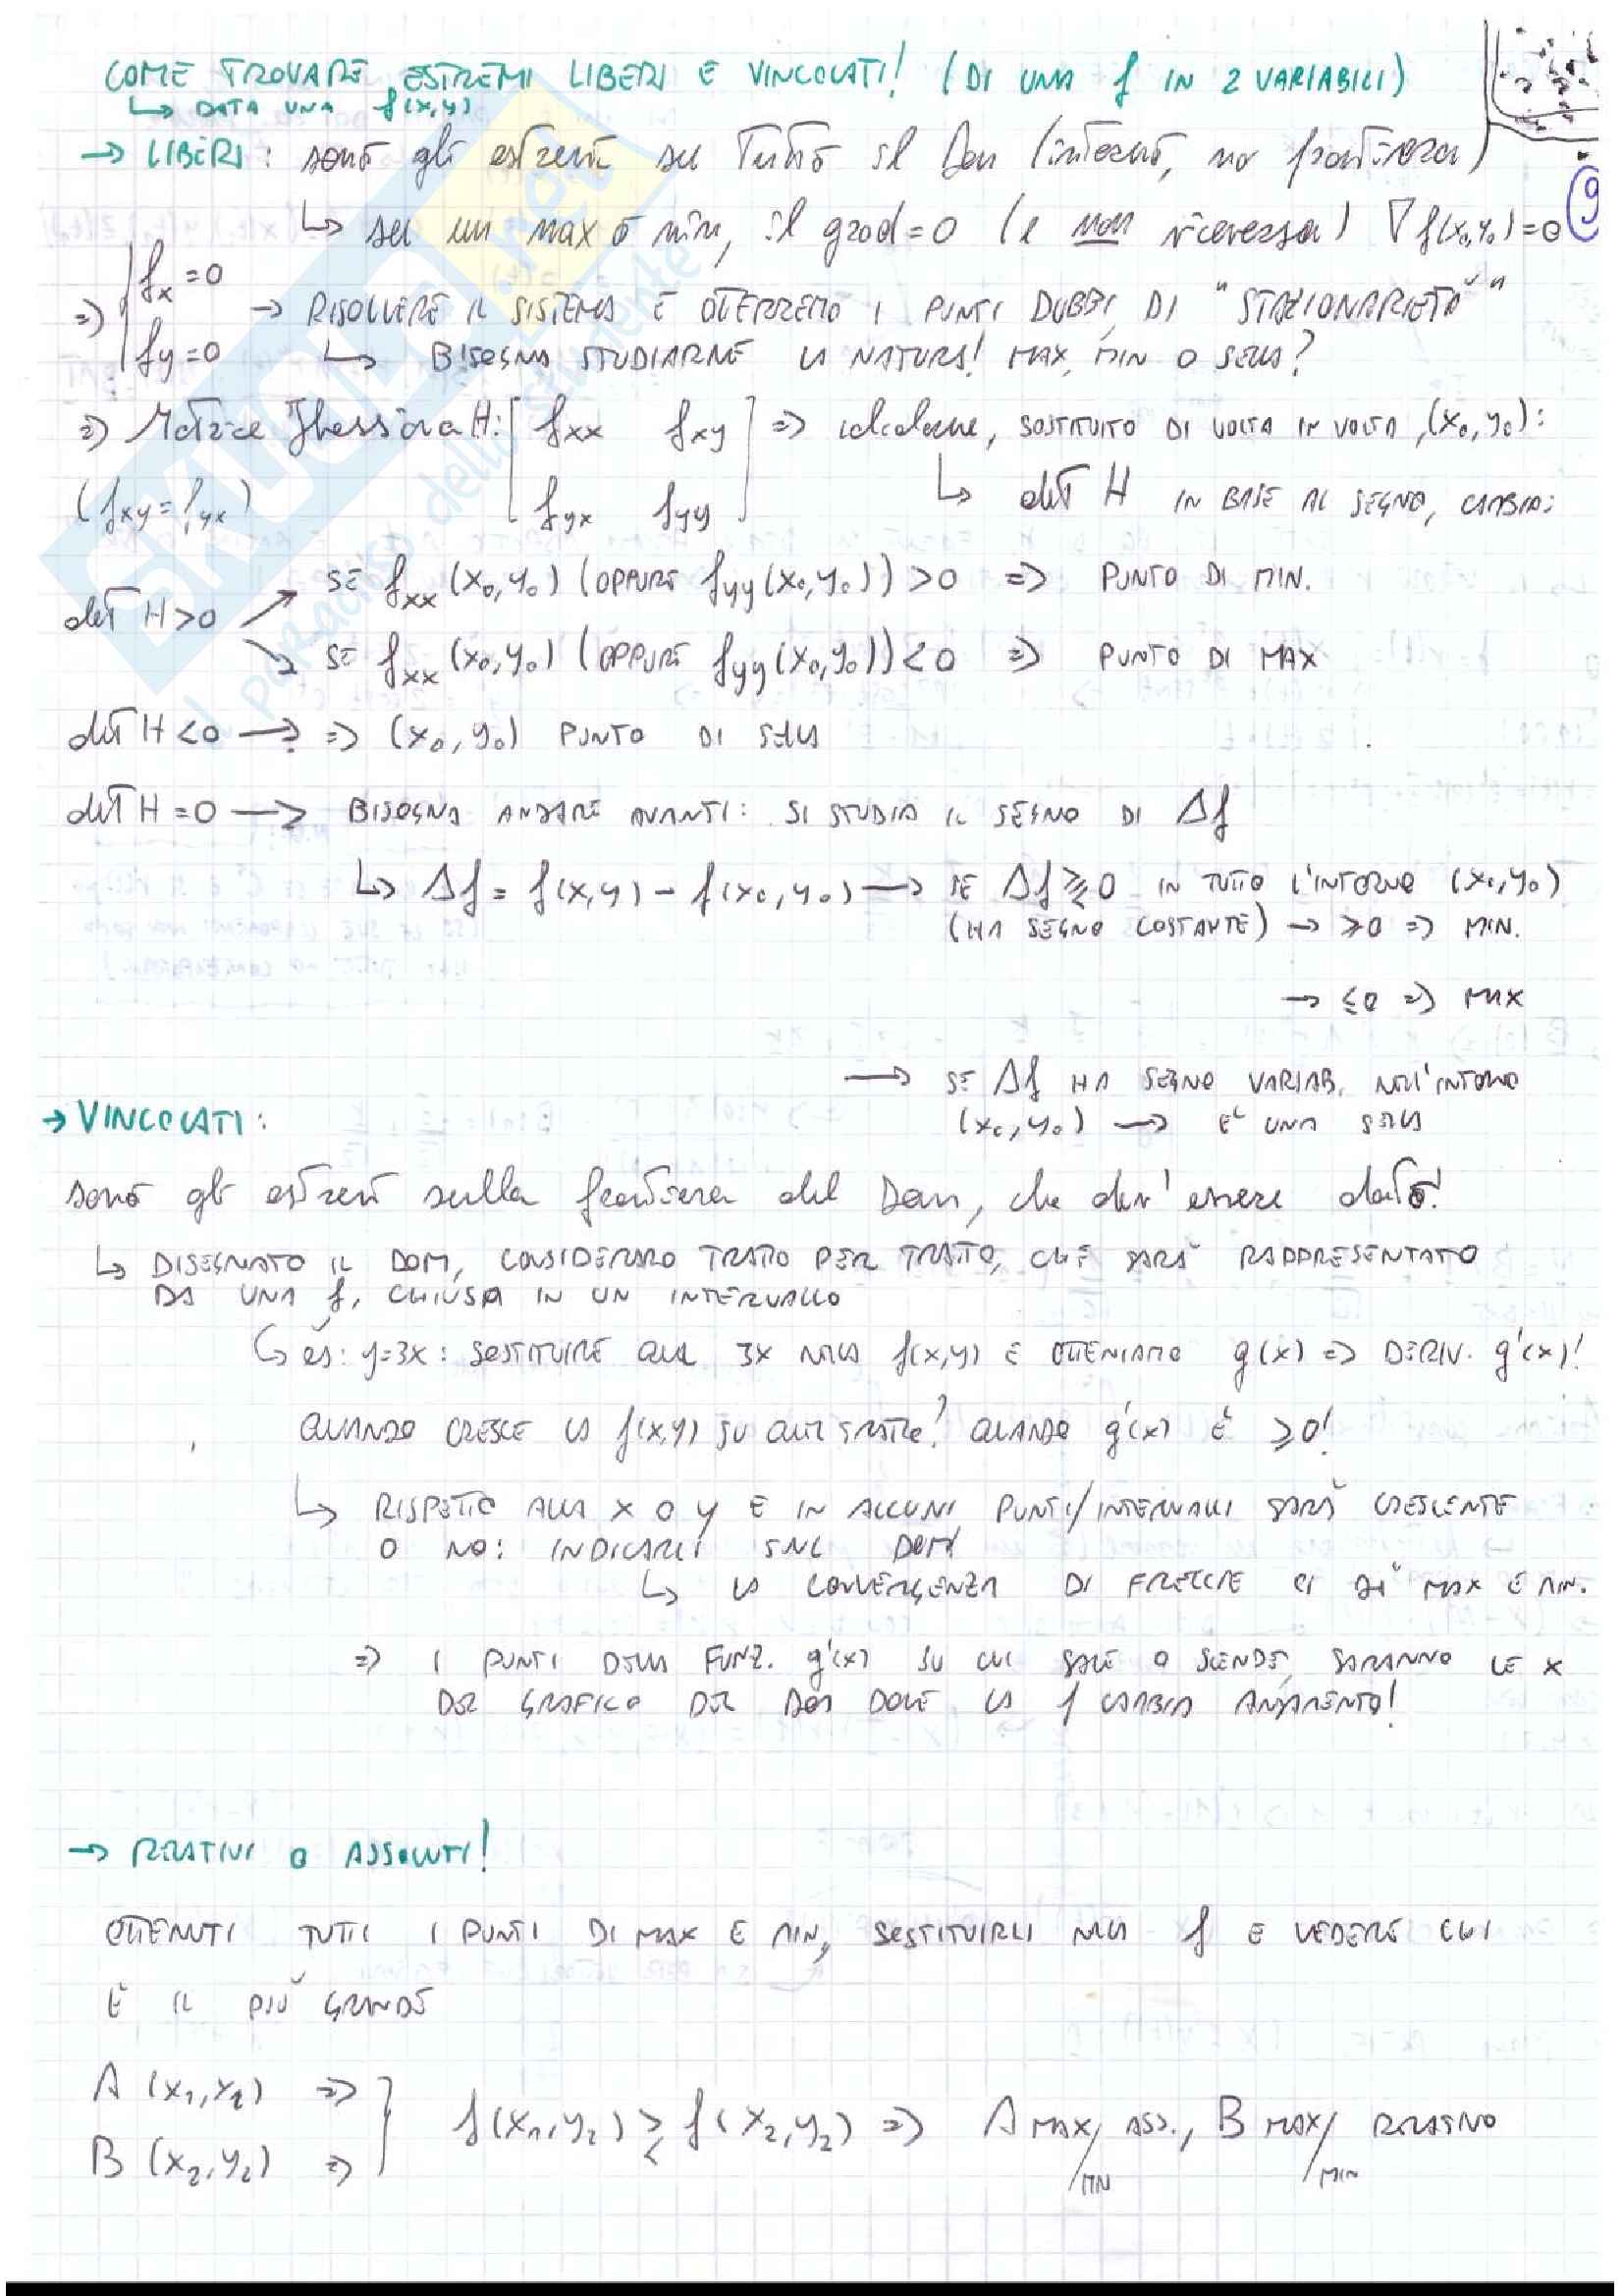 COME TROVARE ESTREMI LIBERI E VINCOLATI! (DI UNA f IN 2 VARIABILI)
↳ DATA UNA f(x,y)
→ LIBERI: sono gli estremi su tutto il Dom (interno, no frontiera)
9
↳ su un max o min, il grad=0 (e non viceversa) ∇f(x₀,y₀)=0
=> { fx=0
fy=0
→ RISOLVERE IL SISTEMA E OTTERREMO I PUNTI DUBBI, DI "STAZIONARIETÀ"
↳ BISOGNA STUDIARNE LA NATURA! MAX, MIN O SELLA?
=> Matrice Hessiana H: [ fxx fxy
fyx fyy ]
=> calcolarne, SOSTITUITO DI VOLTA IN VOLTA, (x₀,y₀):
(fxy=fyx)
↳ det H IN BASE AL SEGNO, CAMBIA:
det H>0
SE fxx(x₀,y₀) (OPPURE fyy(x₀,y₀))>0 => PUNTO DI MIN.
SE fxx(x₀,y₀) (OPPURE fyy(x₀,y₀))<0 => PUNTO DI MAX
det H<0 → => (x₀,y₀) PUNTO DI SELLA
det H=0 → BISOGNA ANDARE AVANTI: SI STUDIA IL SEGNO DI Δf
↳ Δf = f(x,y) - f(x₀,y₀) → SE Δf ⋛ 0 IN TUTTO L'INTORNO (x₀,y₀)
(HA SEGNO COSTANTE) → ≥0 => MIN.
→ ≤0 => MAX
→ SE Δf HA SEGNO VARIAB. NELL'INTORNO
(x₀,y₀) → E' UNA SELLA
→ VINCOLATI:
sono gli estremi sulla frontiera del Dom, che dev'essere dato!
↳ DISEGNATO IL DOM, CONSIDERARLO TRATTO PER TRATTO, CHE SARÀ RAPPRESENTATO
DA UNA f, CHIUSA IN UN INTERVALLO
↳ es: y=3x: SOSTITUIRE QUEL 3x NELLA f(x,y) E OTTENIAMO g(x) => DERIV. g'(x)!
QUANDO CRESCE LA f(x,y) SU QUEL TRATTO? QUANDO g'(x) È ≥0!
↳ RISPETTO ALLA x O y E IN ALCUNI PUNTI/INTERVALLI SARÀ CRESCENTE
O NO: INDICARLI SUL DOM
↳ LA CONVERGENZA DI FRECCIE CI DÀ MAX E MIN.
=> I PUNTI DELLA FUNZ. g'(x) SU CUI SALE O SCENDE, SARANNO LE x
DEL GRAFICO DEL DOM DOVE LA f CAMBIA ANDAMENTO!
→ RELATIVI O ASSOLUTI!
OTTENUTI TUTTI I PUNTI DI MAX E MIN, SOSTITUIRLI NELLA f E VEDERE CHI
È IL PIÙ GRANDE
A (x₁,y₁) =>
B (x₂,y₂) =>
} f(x₁,y₂) ≷ f(x₂,y₂) => A MAX/MIN ASS., B MAX/MIN RELATIVO
SKUOLA.net
il paradiso dello studente